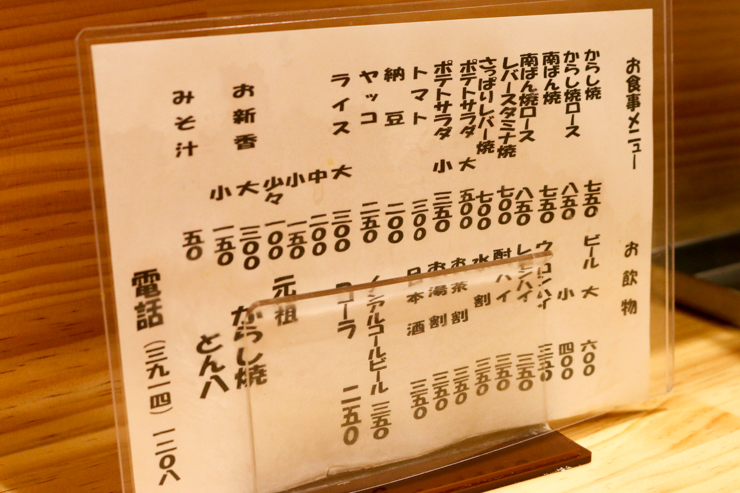 お食事メニュー
からし焼 七五〇
からし焼ロース 八五〇
南ばん焼 七五〇
南ばん焼ロース 八五〇
レバースタミナ焼 七〇〇
さっぱりレバー焼 七〇〇
ポテトサラダ 大 五〇〇
ポテトサラダ 小 三五〇
トマト 三〇〇
納豆 二〇〇
ヤッコ 二五〇
ライス 大 三〇〇
中 二〇〇
小 一五〇
少々 一〇〇
お新香 大 三〇〇
小 一五〇
みそ汁 五〇
お飲物
ビール 大 六〇〇
小 四〇〇
ウーロンハイ 三五〇
レモンハイ 三五〇
酎ハイ 三五〇
水割 三五〇
お茶割 三五〇
お湯割 三五〇
日本酒 三五〇
ノンアルコールビール 三五〇
コーラ 二五〇
元祖
からし焼
とん八
電話 (三九一四) 一二〇八